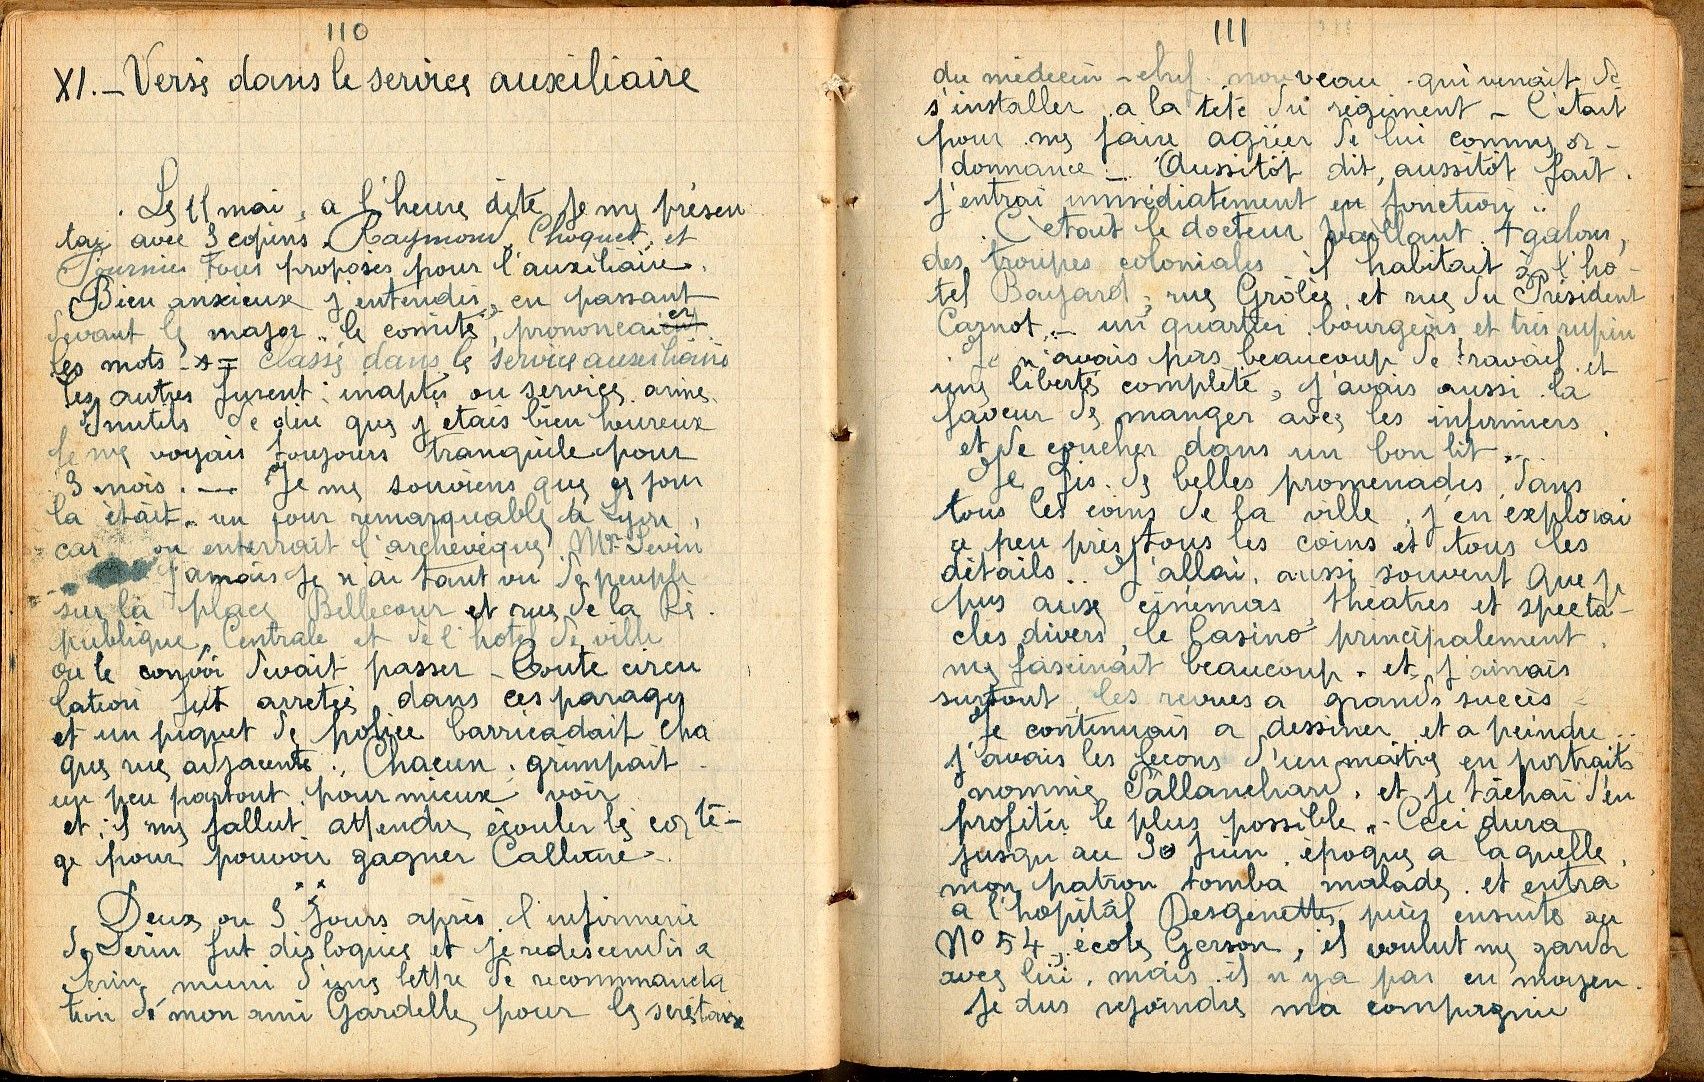 110
XI. - Versé dans le service auxiliaire
Le 11 mai, a l'heure dite je me présen
tai avec 3 copins, Raymond, Choquet, et
Fournier tous proposés pour l'auxiliaire.
Bien anxieux j'entendis, en passant
devant le major.. le comité, prononcaient
les mots - = classé dans le service auxiliaire
Les autres furent : inaptes ou service armé.
Inutile de dire que j'étais bien heureux
Je me voyais toujours tranquile pour
3 mois. — Je me souviens que ce jour
la était un jour remarquable, à Lyon,
car on enterrait l'archevêque, Mgr Sevin
Jamais je n'ai tant vu de peuple
sur la place Bellecour et rue de la Ré.
publique, Centrale et de l'hotel de ville
ou le convoi devait passer - Toute circu
lation fut arretée dans ces parages
et un piquet de police barricadait cha
que rue adjacente.. Chacun grimpait
un peu partout pour mieux voir
et, il me fallut attendre écouler le cortè-
ge pour pouvoir gagner Calluire.
Deux ou 3 jours après l'infirmerie
de Serin fut disloquée et je redescendis a
Serin muni d'une lettre de recommanda
tion de mon ami Gardelle, pour le secrétaire
111
du médecin-chef nouveau qui venait de
s'installer a la tête du régiment - C'était
pour me faire agréer de lui comme or-
donnance -. Aussitôt dit, aussitôt fait.
j'entrai immédiatement en fonction..
C'était le docteur Vaillant 4 galons,
des troupes coloniales il habitait à l'ho-
tel Bayard, rue Grôlée, et rue du Président
Carnot, - un quartier bourgeois et très rupin
Je n'avais pas beaucoup de travail et
une liberté complète, j'avais aussi la
faveur de manger avec les infirmiers
et de coucher dans un bon lit..
Je fis de belles promenades dans
tous les coins de la ville, j'en explorai
a peu près tous les coins et tous les
détails.. J'allai aussi souvent que je
pus aux cinémas théatres et specta-
cles divers, le Casino principalement
me fascinait beaucoup. et j'aimais
surtout les revues a grands succès -
Je continuais a dessiner et a peindre..
j'avais les leçons d'un maître en portraits
nommé Pallanchard, et je tâchai d'en
profiter le plus possible.- Ceci dura
jusqu au 30 juin, époque a laquelle,
mon patron tomba malade, et entra
a l'hopitâl Desgenettes puis ensuite au
No 54, école Gerson, il voulut me garder
avec lui, mais il n y a pas eu moyen.
Je dus rejoindre ma compagnie